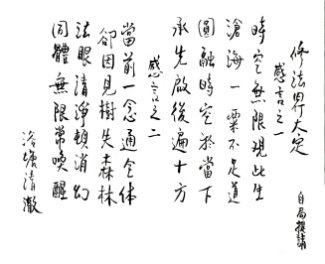 修法界大定
感言之一
自局撰韻
時空無限現此生
滄海一粟不足道
圓融時空於當下
承先啟後遍十方
感言之二
當前一念通全体
卻因見樹失森林
法眼清淨頓消幻
同體無限常喚醒
洛塘清澈